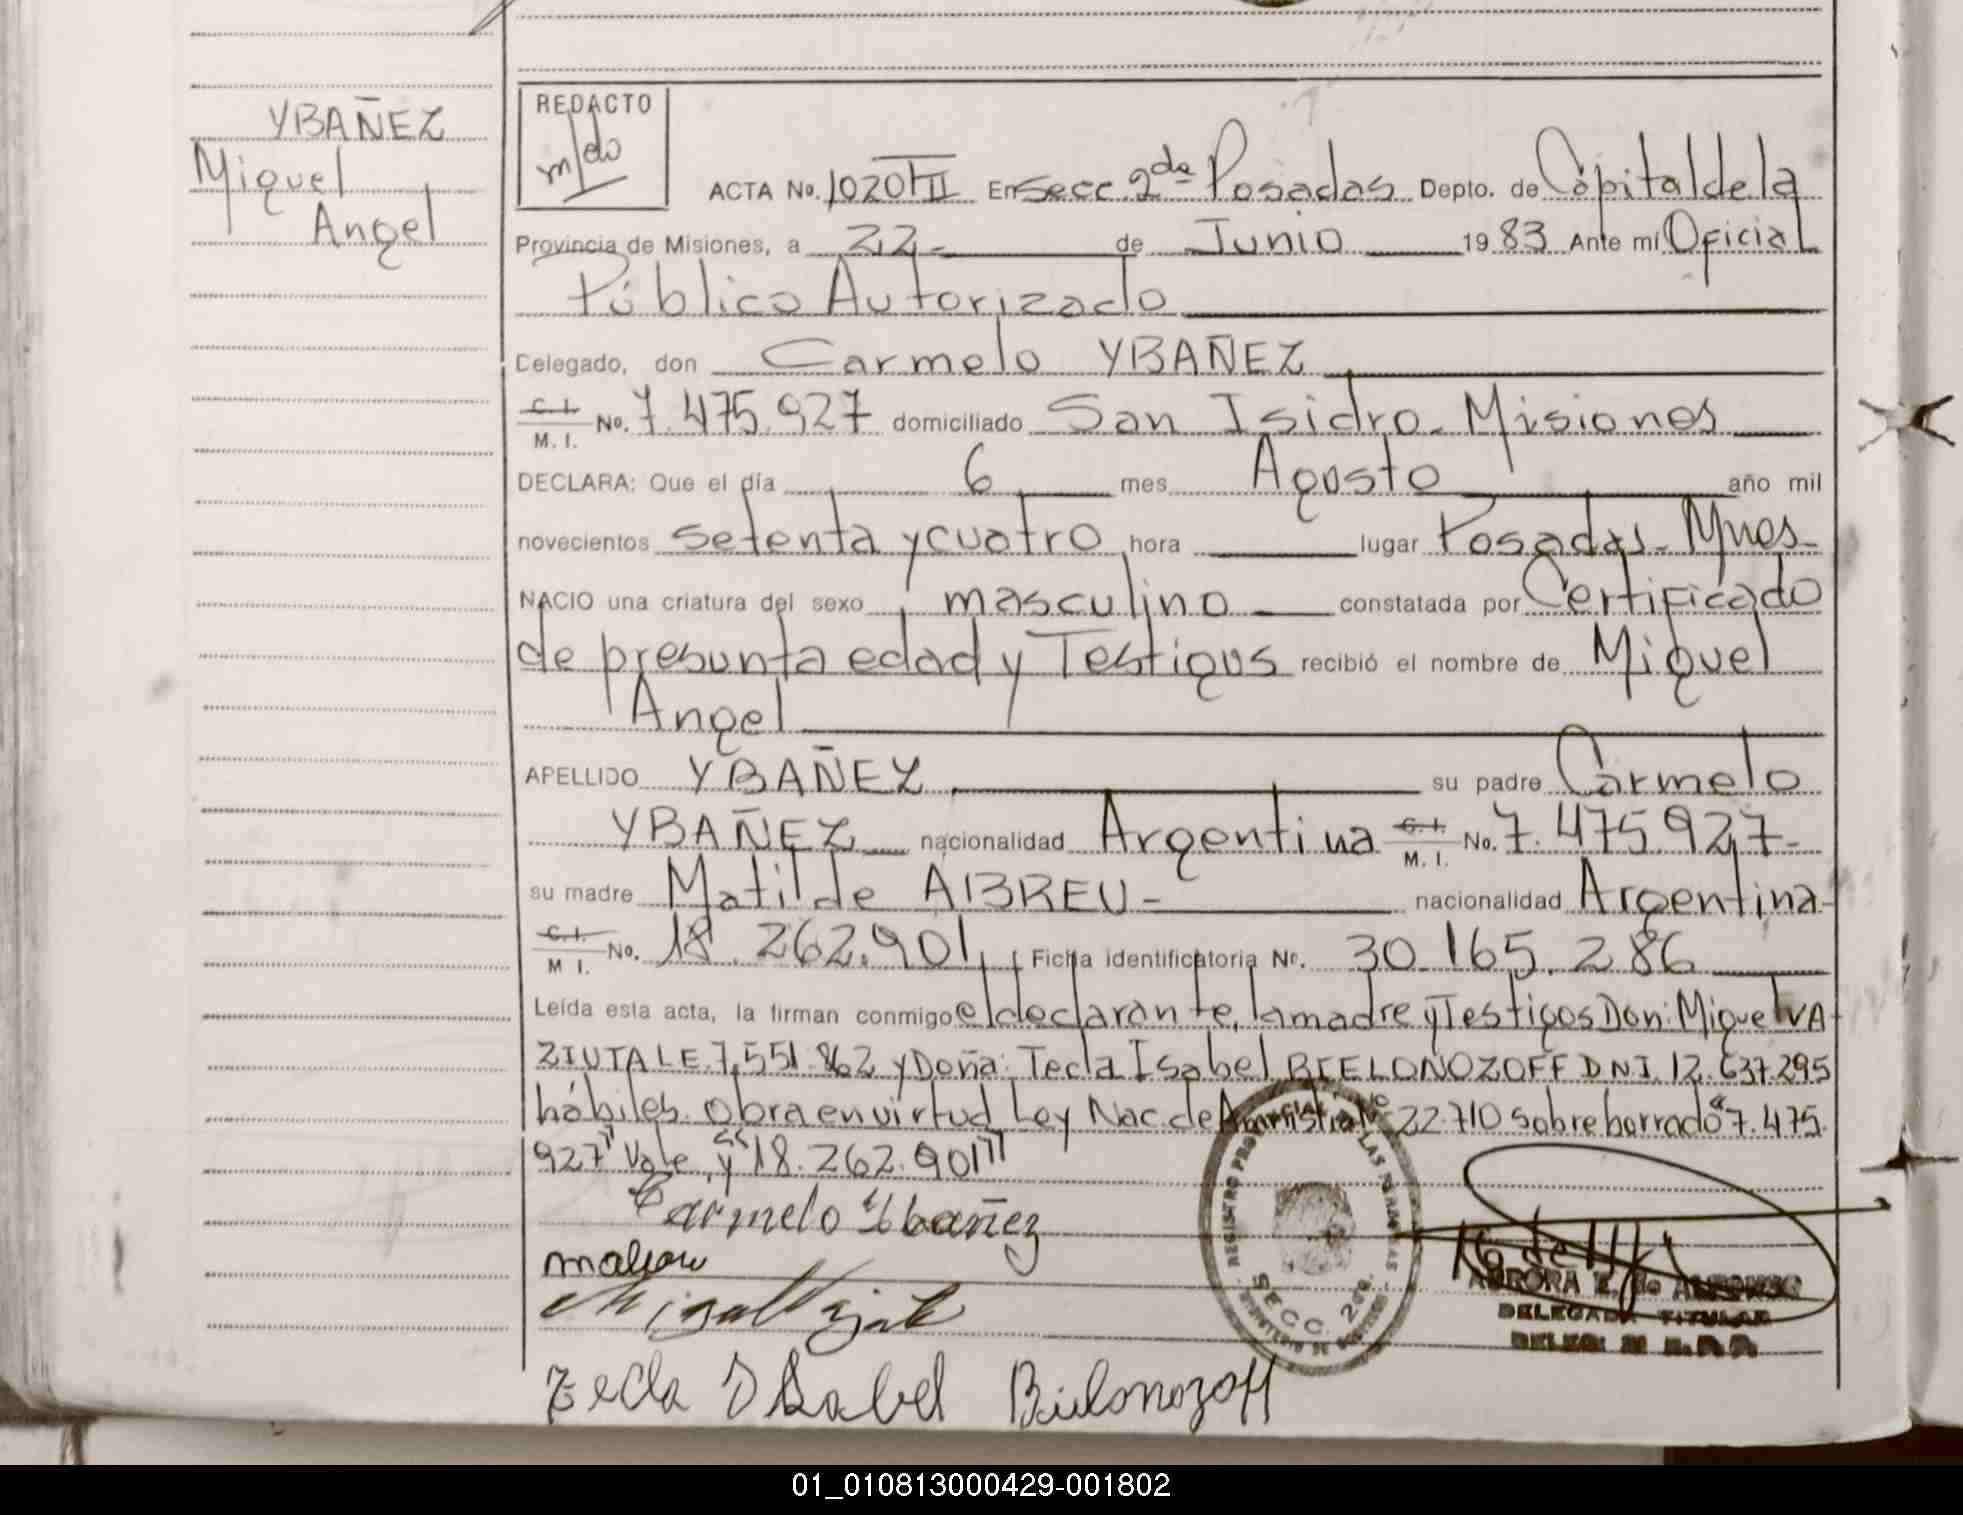 YBAÑEZ
Miguel
Angel
REDACTO
ACTA No. 1020 TII En Secc. 2da Posadas Depto. de Capital de la
Provincia de Misiones, a 22- de Junio 1983 Ante mí Oficial
Público Autorizado
Celegado, don Carmelo YBAÑEZ
C. I. M. I. No. 7.475.927 domiciliado San Isidro. Misiones
DECLARA: Que el día 6 mes Agosto año mil
novecientos setenta y cuatro hora lugar Posadas. Mnes-
NACIO una criatura del sexo masculino constatada por Certificado
de presunta edad y Testigos recibió el nombre de Miguel
Angel
APELLIDO YBAÑEZ su padre Carmelo
YBAÑEZ nacionalidad Argentina C. I. M. I. No. 7.475.927-
su madre Matilde ABREU- nacionalidad Argentina-
C. I. M I. No. 18.262.901 Ficha identificatoria No. 30.165.286
Leída esta acta, la firman conmigo el declarante, la madre y Testigos Don: Miguel VA
ZIUTA LE. 7.551.862 y Doña: Tecla Isabel BIELONOZOFF DNI. 12.637.295
hábiles. Obra en virtud Ley Nac. de Amnistia No 22.710 sobre borrado "7.475.
927" Vale, y "18.262.901"
Carmelo Ybañez
Tecla Isabel Bielonozoff
REGISTRO PRO DE LAS PERSONAS
SECC. 2da.
AURORA E. de ALFONSO
DELEGADA TITULAR
01_010813000429-001802